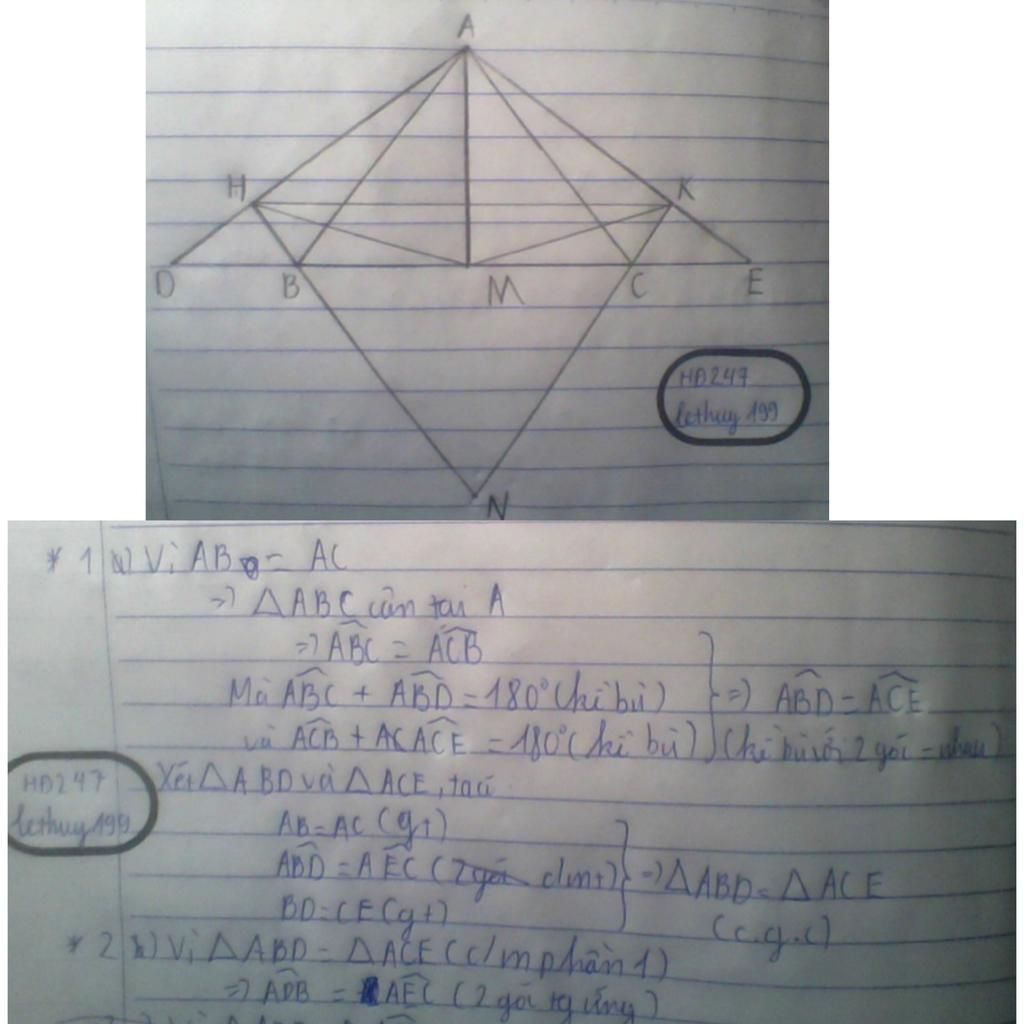 A
H
K
D
B
M
C
E
HD247
lethuy199
N
* 1 a) Vì AB = AC
=> △ABC cân tại A
=> ABC = ACB
Mà ABC + ABD = 180° (kề bù) => ABD = ACE
và ACB + AC ACE = 180° (kề bù) (kề bù với 2 góc = nhau)
HD247
lethuy199
Xét △ABD và △ACE, ta có
AB = AC (gt)
ABD = AEC (2 góc cmt) => △ABD = △ACE
BD = CE (gt)
(c.g.c)
* 2 b) Vì △ABD = △ACE (c/m phần 1)
=> ADB = AEC (2 góc tg ứng)